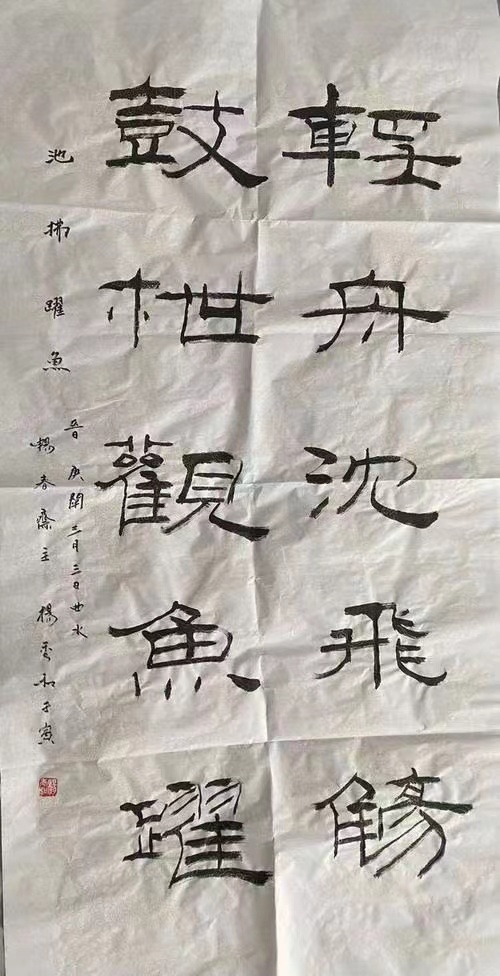 輕舟沈飛觴
鼓枻觀魚躍
池拂躍魚
晉庾闡三月三日曲水
春齋主 楊和壬寅